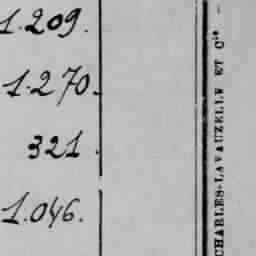 1.209.
1.270.
321.
1.046.
CHARLES-LAVAUZELLE ET Cie -